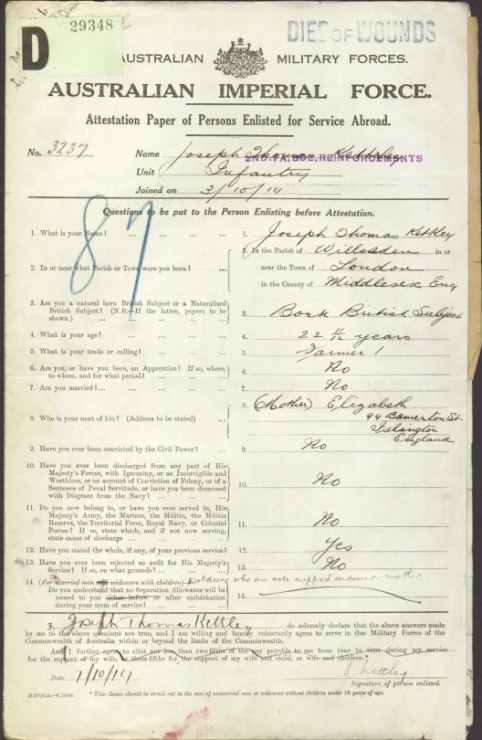 D
29348
DIED OF WOUNDS
AUSTRALIAN MILITARY FORCES.
AUSTRALIAN IMPERIAL FORCE.
Attestation Paper of Persons Enlisted for Service Abroad.
No. 3237 Name Joseph Thomas Kettley
REINFORCEMENTS
Unit Infantry
Joined on 3/10/14
87
Questions to be put to the Person Enlisting before Attestation.
1. What is your Name? ... 1. Joseph Thomas Kettley
2. In or near what Parish or Town were you born? ... 2. In the Parish of Willesden in or
near the Town of London
in the County of Middlesex Eng
3. Are you a natural born British Subject or a Naturalized
British Subject? (N.B.—If the latter, papers to be
shown.) 3. Born British Subject
4. What is your age? ... 4. 22 years
5. What is your trade or calling? ... 5. Farmer
6. Are you, or have you been, an Apprentice? If so, where,
to whom, and for what period? ... 6. No
7. Are you married? ... 7. No
8. Who is your next of kin? (Address to be stated) ... 8. (Mother) Elizabeth
94 St.
Islington
England
9. Have you ever been convicted by the Civil Power? ... 9. No
10. Have you ever been discharged from any part of His
Majesty's Forces, with Ignominy, or as Incorrigible and
Worthless, or on account of Conviction of Felony, or of a
Sentence of Penal Servitude, or have you been dismissed
with Disgrace from the Navy? ... 10. No
11. Do you now belong to, or have you ever served in, His
Majesty's Army, the Marines, the Militia, the Militia
Reserve, the Territorial Force, Royal Navy, or Colonial
Forces? If so, state which, and if not now serving,
state cause of discharge ... 11. No
12. Have you stated the whole, if any, of your previous service? 12. Yes
13. Have you ever been rejected as unfit for His Majesty's
Service? If so, on what grounds? ... 13. No
14. (For married men or widowers with children) Soldiers who are sole support
Do you understand that no Separation Allowance will be
issued to you either before or after embarkation
during your term of service? ... 14.
I, Joseph Thomas Kettley do solemnly declare that the above answers made
by me to the above questions are true, and I am willing and hereby voluntarily agree to serve in the Military Forces of the
Commonwealth of Australia within or beyond the limits of the Commonwealth.
And I further agree to allot not less than two-fifths of the pay payable to me from time to time during my service
for the support of my wife, three-fifths for the support of my wife and child, or wife and children.*
Date 7/10/14 J Kettley
Signature of person enlisted.
* This clause should be struck out in the case of unmarried men or widowers without children under 18 years of age.